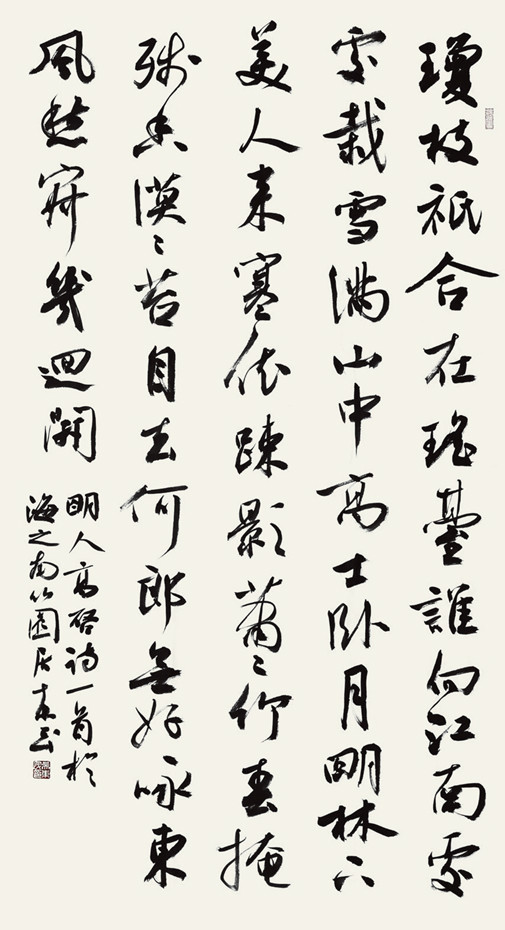 瓊枝祇合在瑤臺誰向江南處
處栽雪滿山中高士臥月明林下
美人來寒依踈影蕭〻竹春掩
殘香漠〻苔自去何郎無好詠東
風愁寂幾迴開
明人高啓詩一首於
海之南竹園居